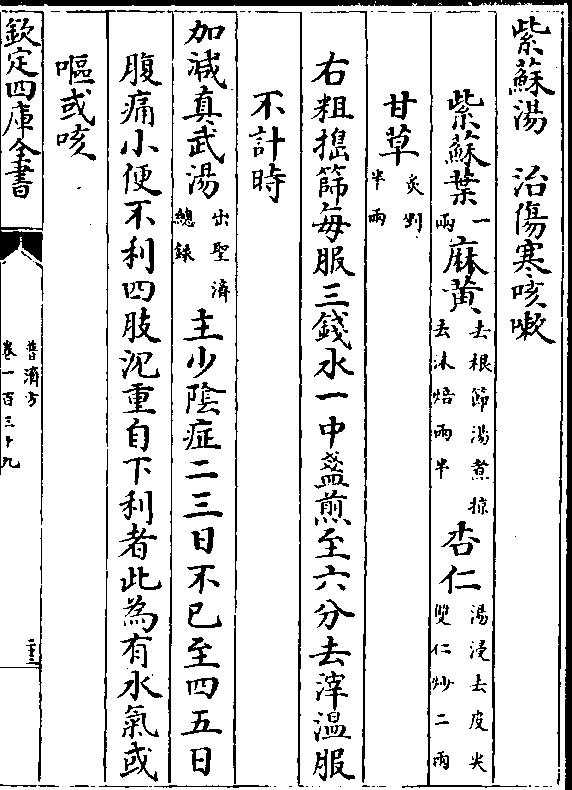 紫蘇湯　治傷寒咳嗽
紫蘇葉一兩 麻黄去根節湯煮掠去沫焙兩半 杏仁湯浸去皮尖雙仁炒二兩
甘草炙剉半兩
右粗搗篩每服三錢水一中盞煎至六分去滓溫服
不計時
加減真武湯出聖濟總録 主少陰症二三日不已至四五日
腹痛小便不利四肢沉重自下利者此為有水氣或
嘔或咳
欽定四庫全書
普濟方
卷一百三十九